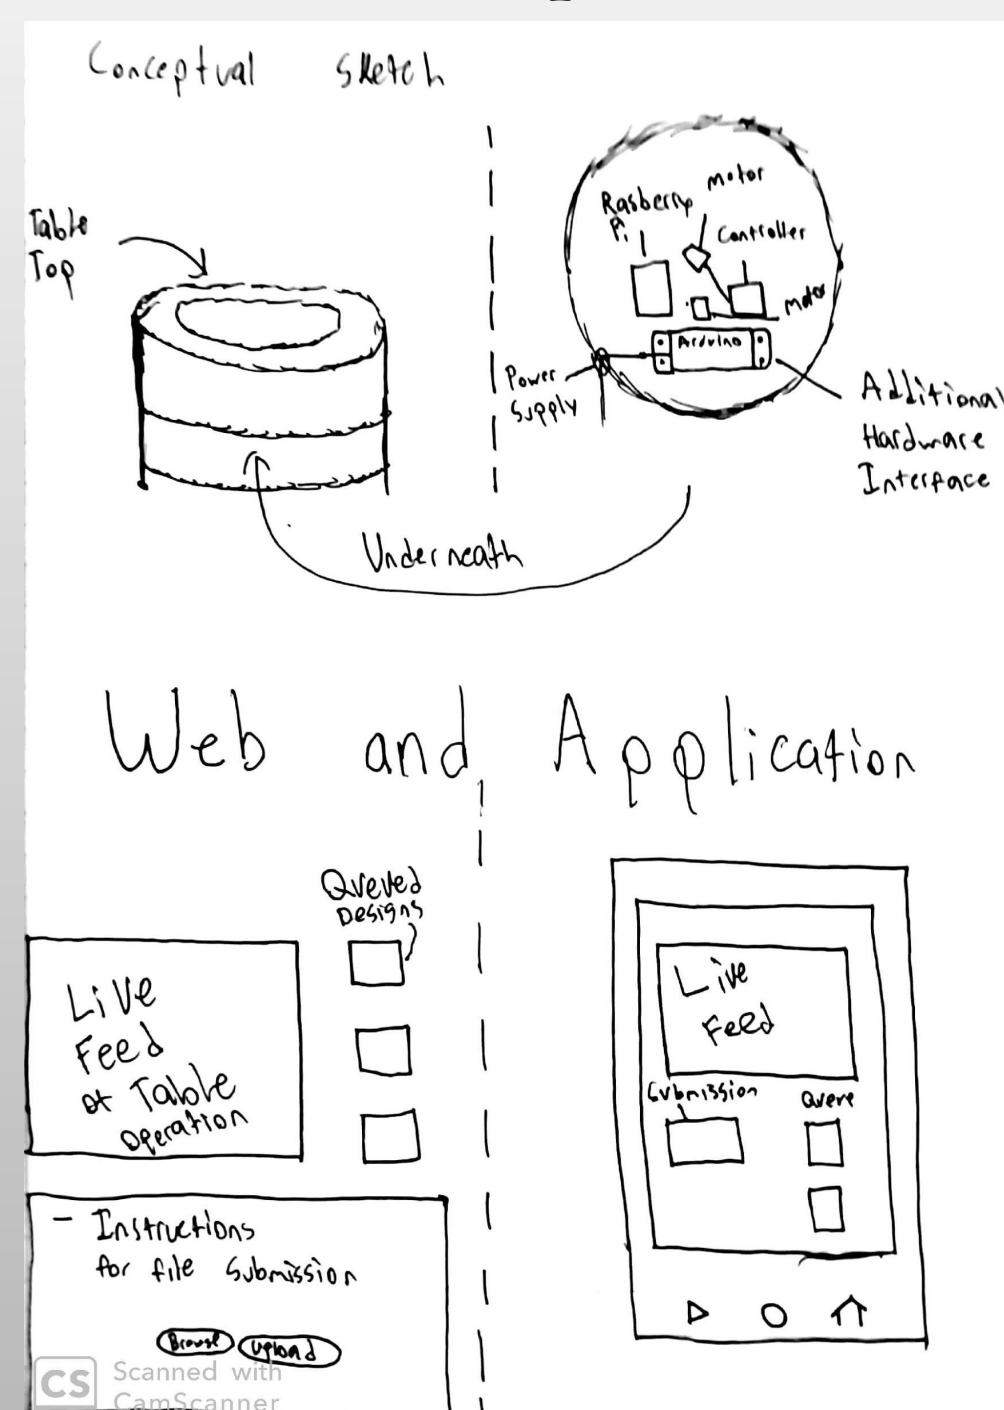 Conceptual Sketch
Table
Top
Rasberry
Pi
motor
Controller
motor
Arduino
Power
Supply
Additional
Hardware
Interface
Underneath
Web and Application
Queued
Designs
Live
Feed
of Table
Operation
- Instructions
for file Submission
Browse
Upload
Live
Feed
Submission
Queue
CS
Scanned with
CamScanner